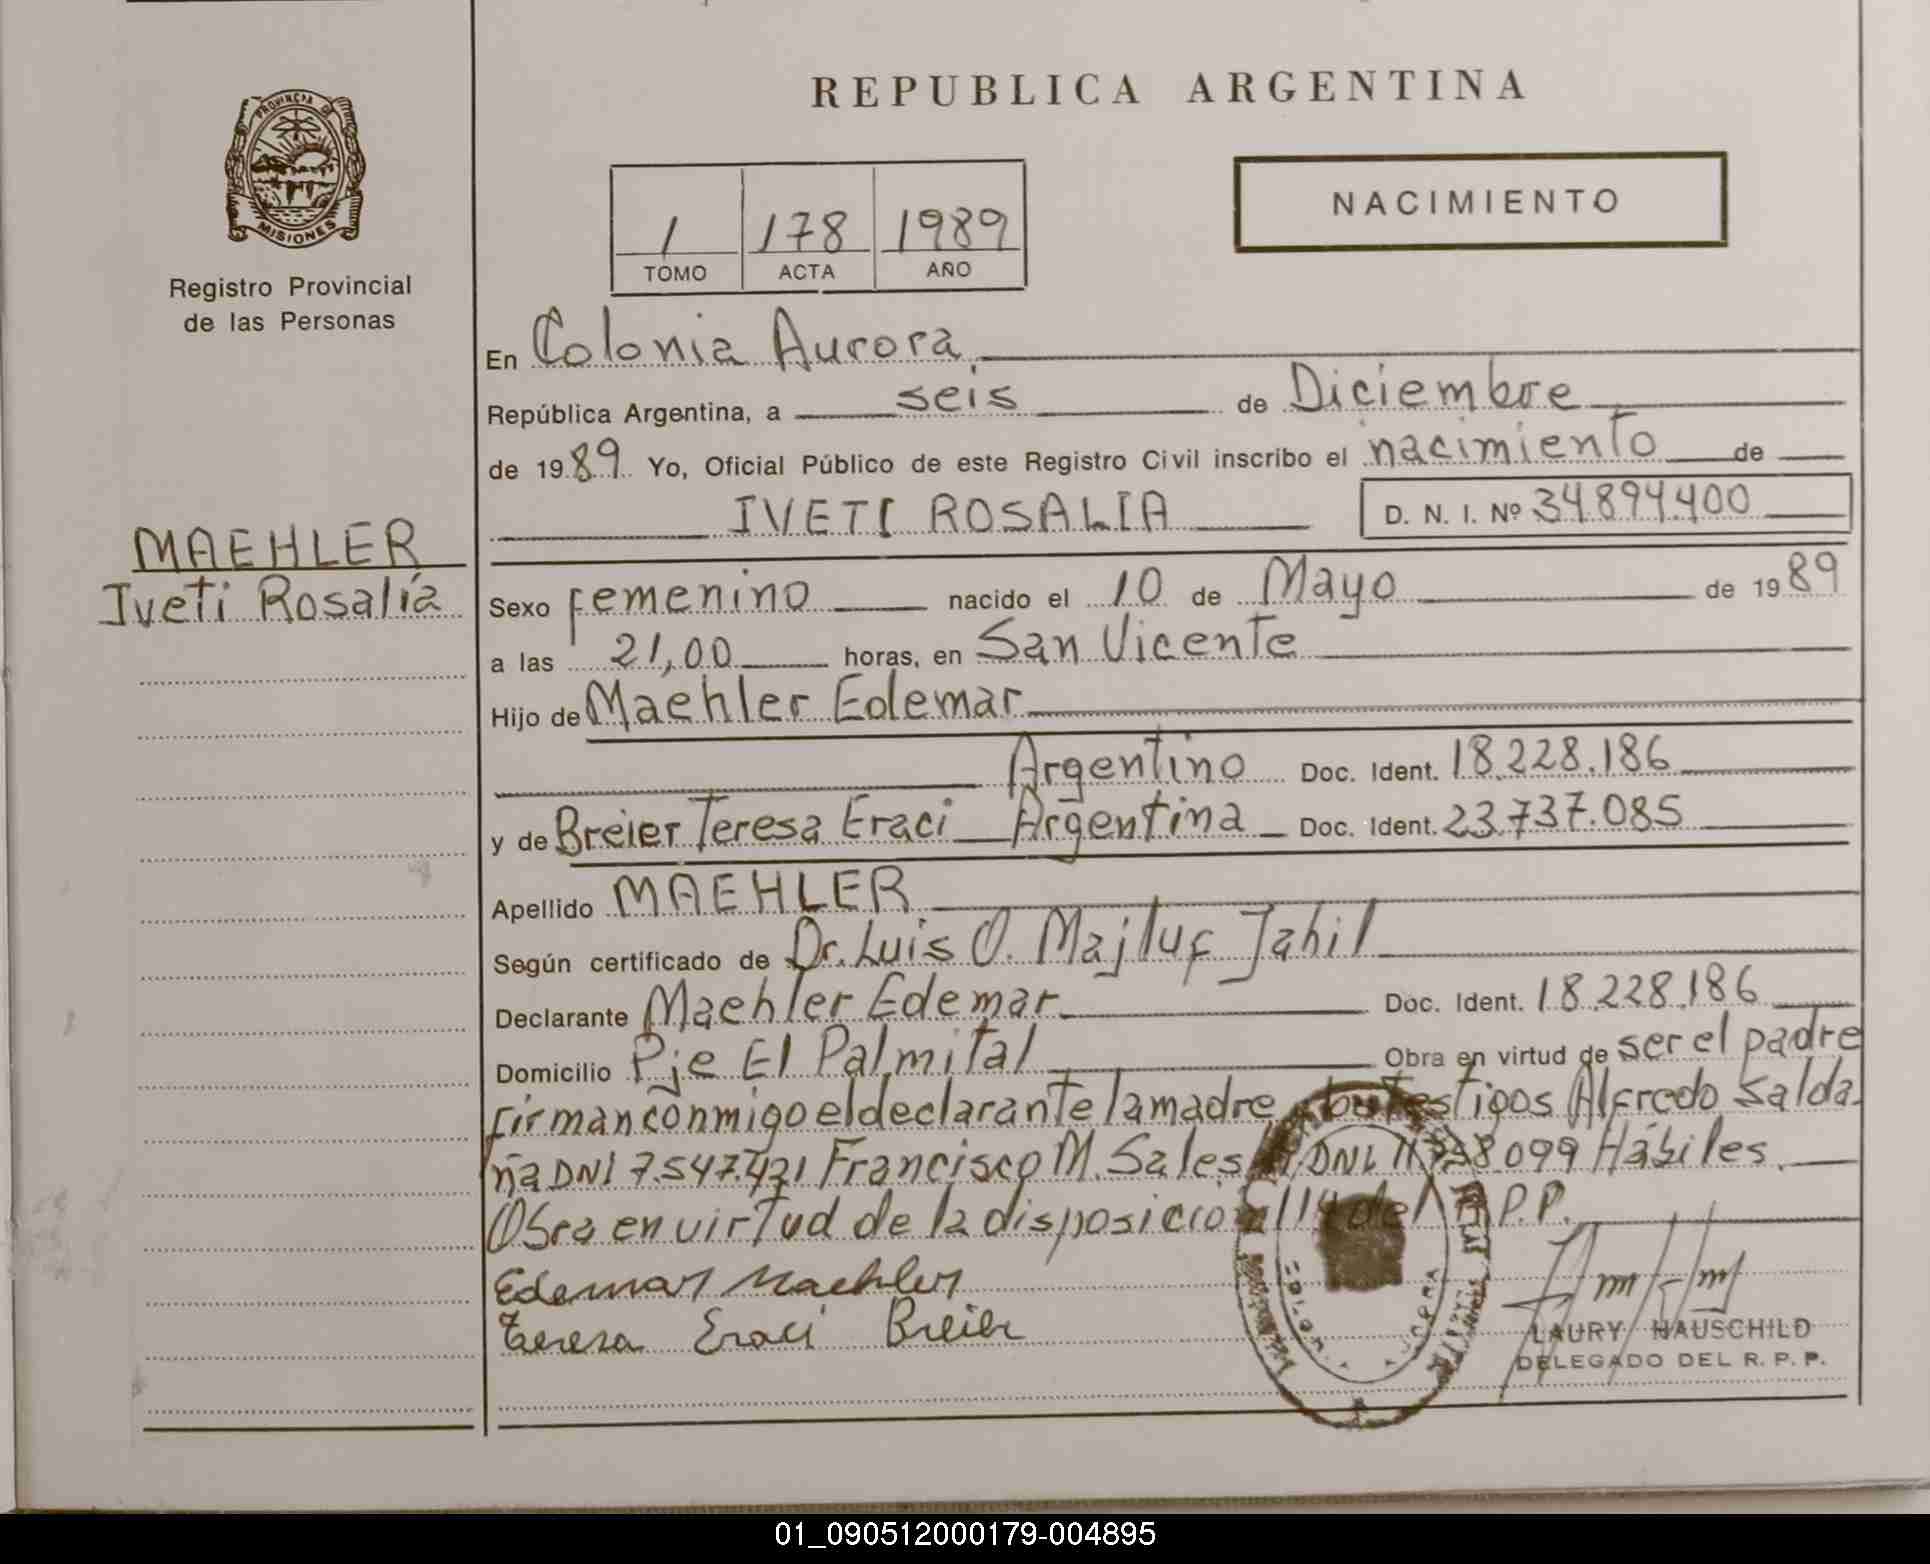 REPUBLICA ARGENTINA
PROVINCIA DE
MISIONES
Registro Provincial
de las Personas
1 178 1989
TOMO ACTA AÑO
NACIMIENTO
MAEHLER
Iveti Rosalía
En Colonia Aurora
República Argentina, a seis de Diciembre
de 1989 Yo, Oficial Público de este Registro Civil inscribo el nacimiento de
IVETI ROSALIA D. N. I. Nº 34.894.400
Sexo femenino nacido el 10 de Mayo de 1989
a las 21,00 horas, en San Vicente
Hijo de Maehler Edemar
Argentino Doc. Ident. 18.228.186
y de Breier Teresa Eraci Argentina Doc. Ident. 23.737.085
Apellido MAEHLER
Según certificado de Dr. Luis O. Majluf Jahil
Declarante Maehler Edemar Doc. Ident. 18.228.186
Domicilio Pje El Palmital Obra en virtud de ser el padre
firman conmigo el declarante la madre testigos Alfredo Salda
ña DNI 7.547.421 Francisco M. Sales DNI 099 Hábiles.
Obra en virtud de la disposición 114 del R.P.P.
Edemar Maehler
Teresa Eraci Breier
LAURY HAUSCHILD
DELEGADO DEL R. P. P.
01_090512000179-004895